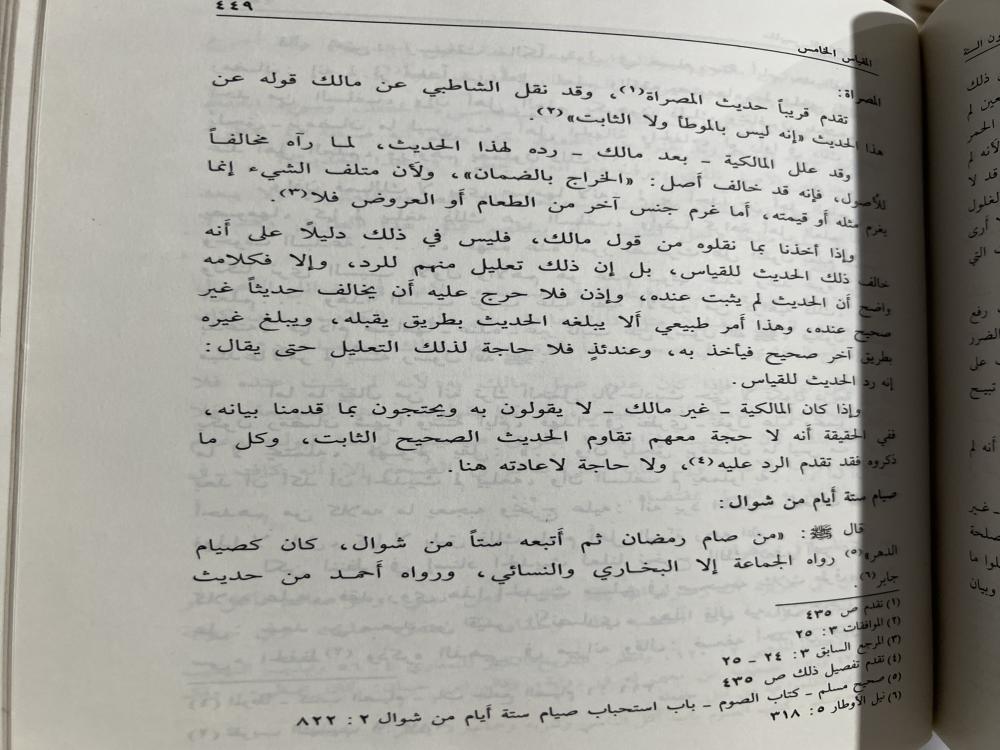 ٤٤٩
المقياس الخامس
المصراة:
تقدم قريباً حديث المصراة(١)، وقد نقل الشاطبي عن مالك قوله عن
هذا الحديث «إنه ليس بالموطأ ولا الثابت»(٢).
وقد علل المالكية - بعد مالك - رده لهذا الحديث، لما رآه مخالفاً
للأصول، فإنه قد خالف أصل: «الخراج بالضمان»، ولأن متلف الشيء إنما
يغرم مثله أو قيمته، أما غرم جنس آخر من الطعام أو العروض فلا(٣).
وإذا أخذنا بما نقلوه من قول مالك، فليس في ذلك دليلاً على أنه
خالف ذلك الحديث للقياس، بل إن ذلك تعليل منهم للرد، وإلا فكلامه
واضح أن الحديث لم يثبت عنده، وإذن فلا حرج عليه أن يخالف حديثاً غير
صحيح عنده، وهذا أمر طبيعي ألا يبلغه الحديث بطريق يقبله، ويبلغ غيره
بطريق آخر صحيح فيأخذ به، وعندئذٍ فلا حاجة لذلك التعليل حتى يقال:
إنه رد الحديث للقياس.
وإذا كان المالكية - غير مالك - لا يقولون به ويحتجون بما قدمنا بيانه،
ففي الحقيقة أنه لا حجة معهم تقاوم الحديث الصحيح الثابت، وكل ما
ذكروه فقد تقدم الرد عليه(٤)، ولا حاجة لاعادته هنا.
صيام ستة أيام من شوال:
قال ﷺ: «من صام رمضان ثم أتبعه ستاً من شوال، كان كصيام
الدهر»(٥) رواه الجماعة إلا البخاري والنسائي، ورواه أحمد من حديث
جابر(٦).
(١) تقدم ص ٤٣٥
(٢) الموافقات ٣: ٢٥
(٣) المرجع السابق ٣: ٢٤ - ٢٥
(٤) تقدم تفصيل ذلك ص ٤٣٥
(٥) صحيح مسلم - كتاب الصوم - باب استحباب صيام ستة أيام من شوال ٢: ٨٢٢
(٦) نيل الأوطار ٥: ٣١٨
ذلك
الخمر
لأنه لم
قد لا
أرى
رفع
الضرر
على
تبيح
أنه لم
غير
وبيان